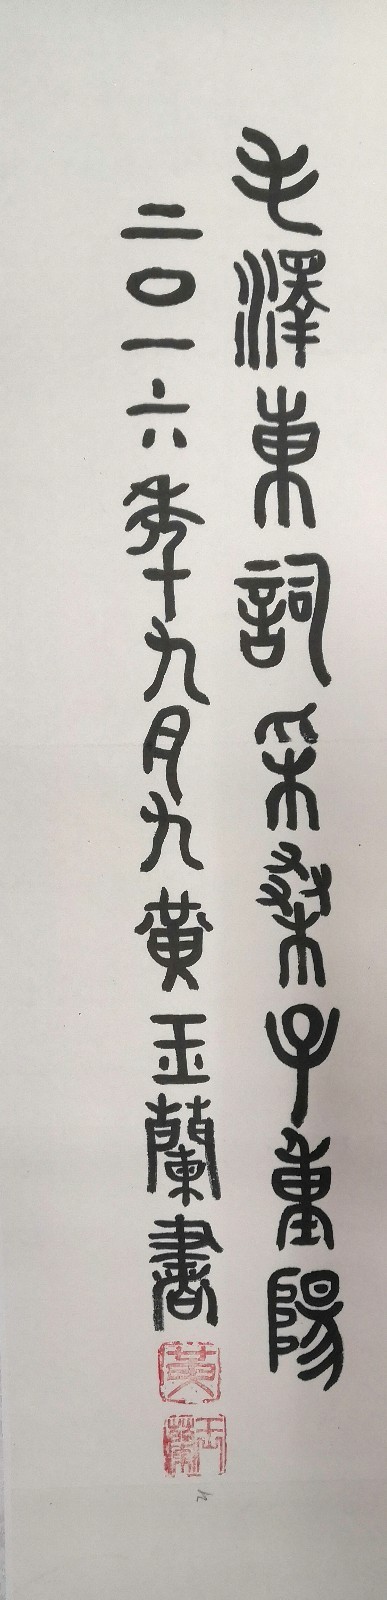 毛澤東詞采桑子重陽
二〇一六年九月九黃玉蘭書
黃
玉蘭